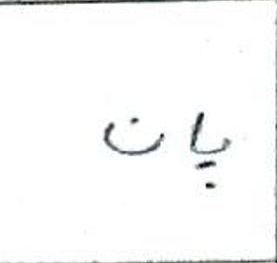 پان